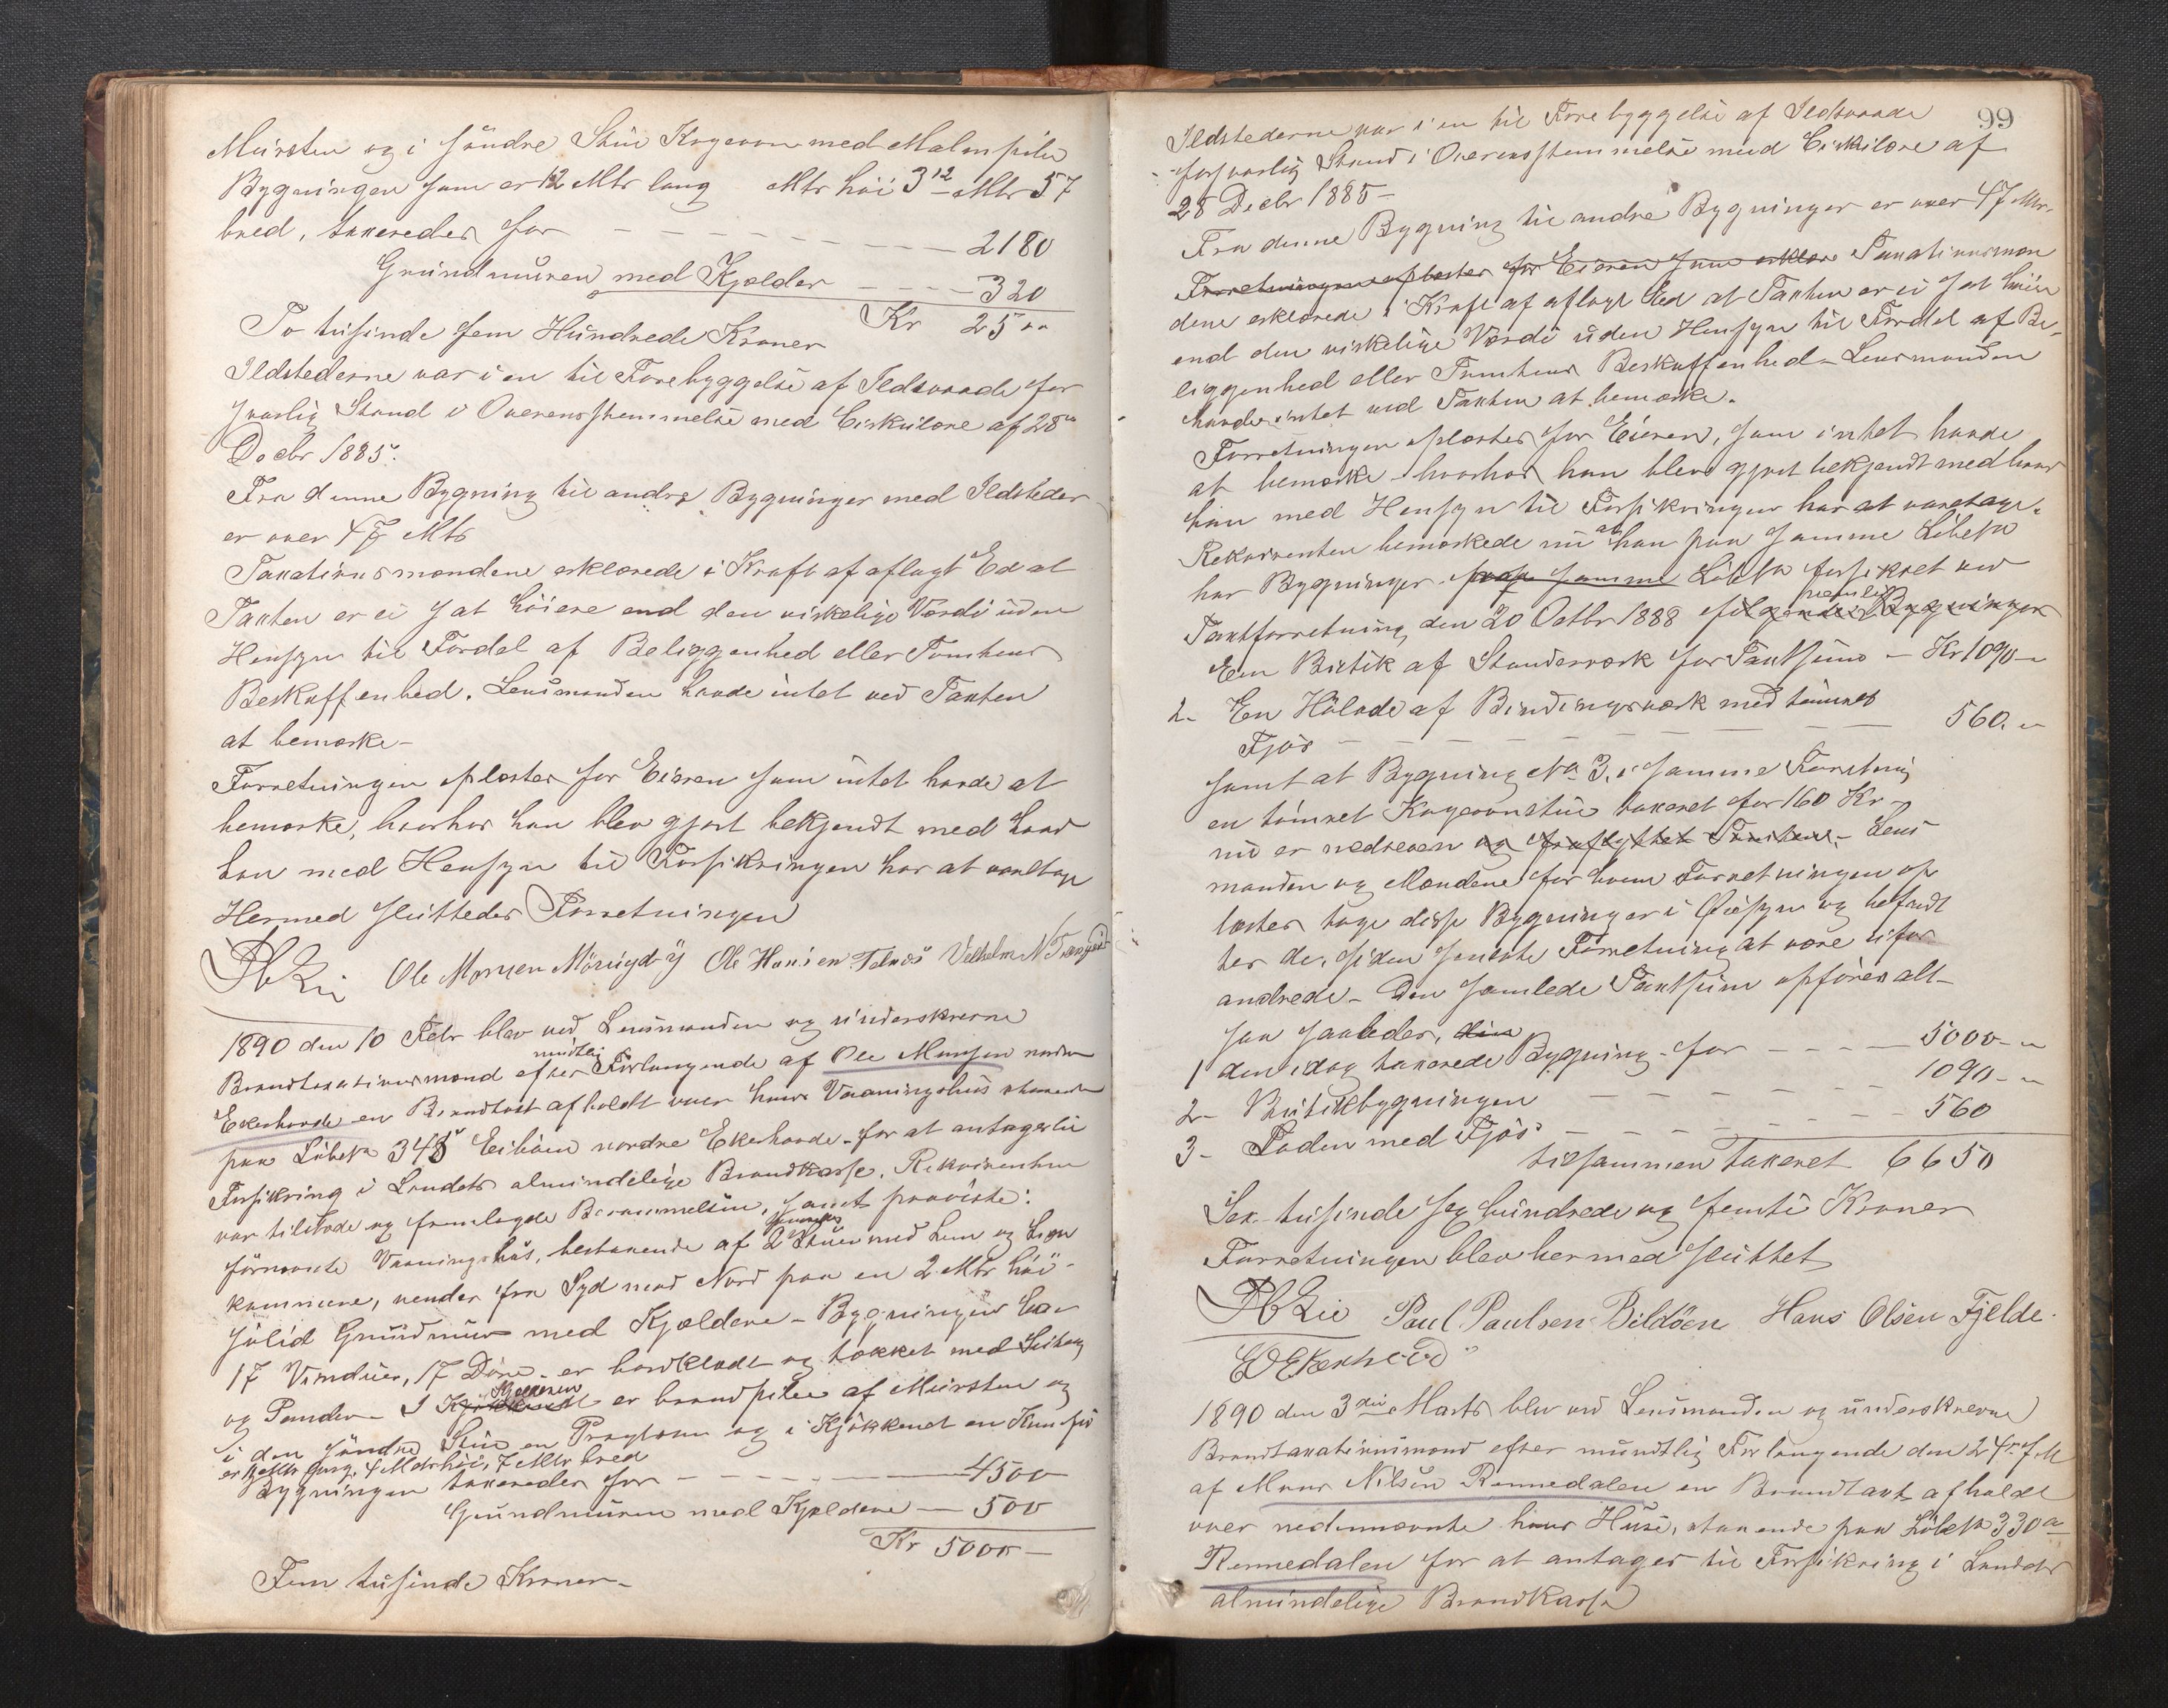 Mursten og i søndre Stue Kogeovn med Malmpibe
Bygningen som er 12 Mtr lang Mtr höi 3 12 Mtr 57
bred, taxeredes for 2180
Grundmuren med Kjelder 320
Kr 25
To tusinde fem Hundrede Kroner
Ildstederne var i en til Forebyggelse af Ildsvaade for
svarlig Stand i Overensstemmelse med Cirkulære af 28
Decbr 1885.
Fra denne Bygning til andre Bygninger med Ildsteder
er over 47 Mtr
Taxationsmændene erklærede i Kraft af aflagt Ed at
Taxten er ei sat höiere end den virkelige Værdi uden
Hensyn til Fordel af Beliggenhed eller Tomtens
Beskaffenhed. Lensmanden havde intet ved Taxten
at bemærke -
Forretningen oplæstes for Eieren som intet havde at
bemærke, hvorhos han blev gjort bekjendt med hvad
han med Hensyn til Forsikringen har at varetage
Hermed sluttedes Forretningen
Ole Monsen Ole Hansen Telnæs Vilhelm N
1890 den 10 Febr blev ved Lensmanden og underskrevne
Brandtaxationsmænd efter mundtlig Forlangende af Ole Monsen nordre
Ekerhovde en Brandtaxt afholdt over hans Vaaningshus staaende
paa Löbe No 348 Eikum nordre Ekerhovde - for at antages til
Forsikring i Landets almindelige Brandkasse. Rekvirenten
var tilstede og fremlagde Berammelsen, samt paaviste:
förnævnte Vaaningshus, bestaaende af 2 Stuer med Lem og
kammere, vender fra Syd mod Nord paa en 2 Mtr höi
solid Grundmur med Kjeldere - Bygningen har
17 Vinduer, 17 Döre - er bordklædt og tækket med
og Pander - I Kjökkenet er brandpibe af Mursten og
i den söndre Stue en og i Kjökkenet en
er Mtr lang, 4 Mtr höi, 7 Mtr bred
Bygningen taxeredes for 4500
Grundmuren med Kjeldere - 500
Kr 5000 -
Fem tusinde Kroner -
99
Ildstederne var i en til Forebyggelse af Ildsvaade
forsvarlig Stand i Overensstemmelse med Cirkulære af
28 Decbr 1885 -
Fra denne Bygning til andre Bygninger er over 47 Mtr.
Forretningen oplæstes for Eieren som erklære Taxationsmæn
dene erklærede i Kraft af aflagt Ed at Taxten er ei sat höiere
end den virkelige Værdi uden Hensyn til Fordel af Be-
liggenhed eller Tomtens Beskaffenhed - Lensmanden
havde intet ved Taxten at bemærke.
Forretningen oplæstes for Eieren, som intet havde
at bemærke - hvorhos han blev gjort bekjendt med hvad
han med Hensyn til Forsikringen har at varetage.
Rekvirenten bemærkede nu at han paa samme Löbe No
har Bygninger paa samme Löbe No forsikret ved
Taxtforretning den 20 Octbr 1888 nemlig fölgende Bygninger
Een Butik af Standerværk for Taxtsum - Kr 1090 -
2 - En Hölade af Bindingsværk med tömret
Fjös 560. -
samt at Bygning No 3. i samme Forretning
en tömret Kogeovnstue taxeret for 160 Kr -
nu er nedreven og fraflyttet Tomten. - Lens
manden og Mændene for hvem Forretningen op
læstes toge disse Bygninger i Öiesyn og befandt
tes de, siden seneste Forretning at være ufor
andrede - Den samlede Taxtsum opföres alt-
saa saaledes, den
1 den idag taxerede Bygning - for 5000 -
2 - Butikbygningen 1090 -
3 - Laden med Fjös 560
tilsammen taxeret 6650
Sex tusinde sex hundrede og femti Kroner
Forretningen blev hermed sluttet
Paul Paulsen Bildöen Hans Olsen Fjelde
1890 den 3die Marts blev ved Lensmanden og underskrevne
Brandtaxationsmænd efter mundtlig Forlangende den 24 f M
af Mons Nilsen Rennedalen en Brandtaxt afholdt
over nedennævnte hans Huse, staaende paa Löbe No 330 a
Rennedalen for at antages til Forsikring i Landets
almindelige Brandkasse